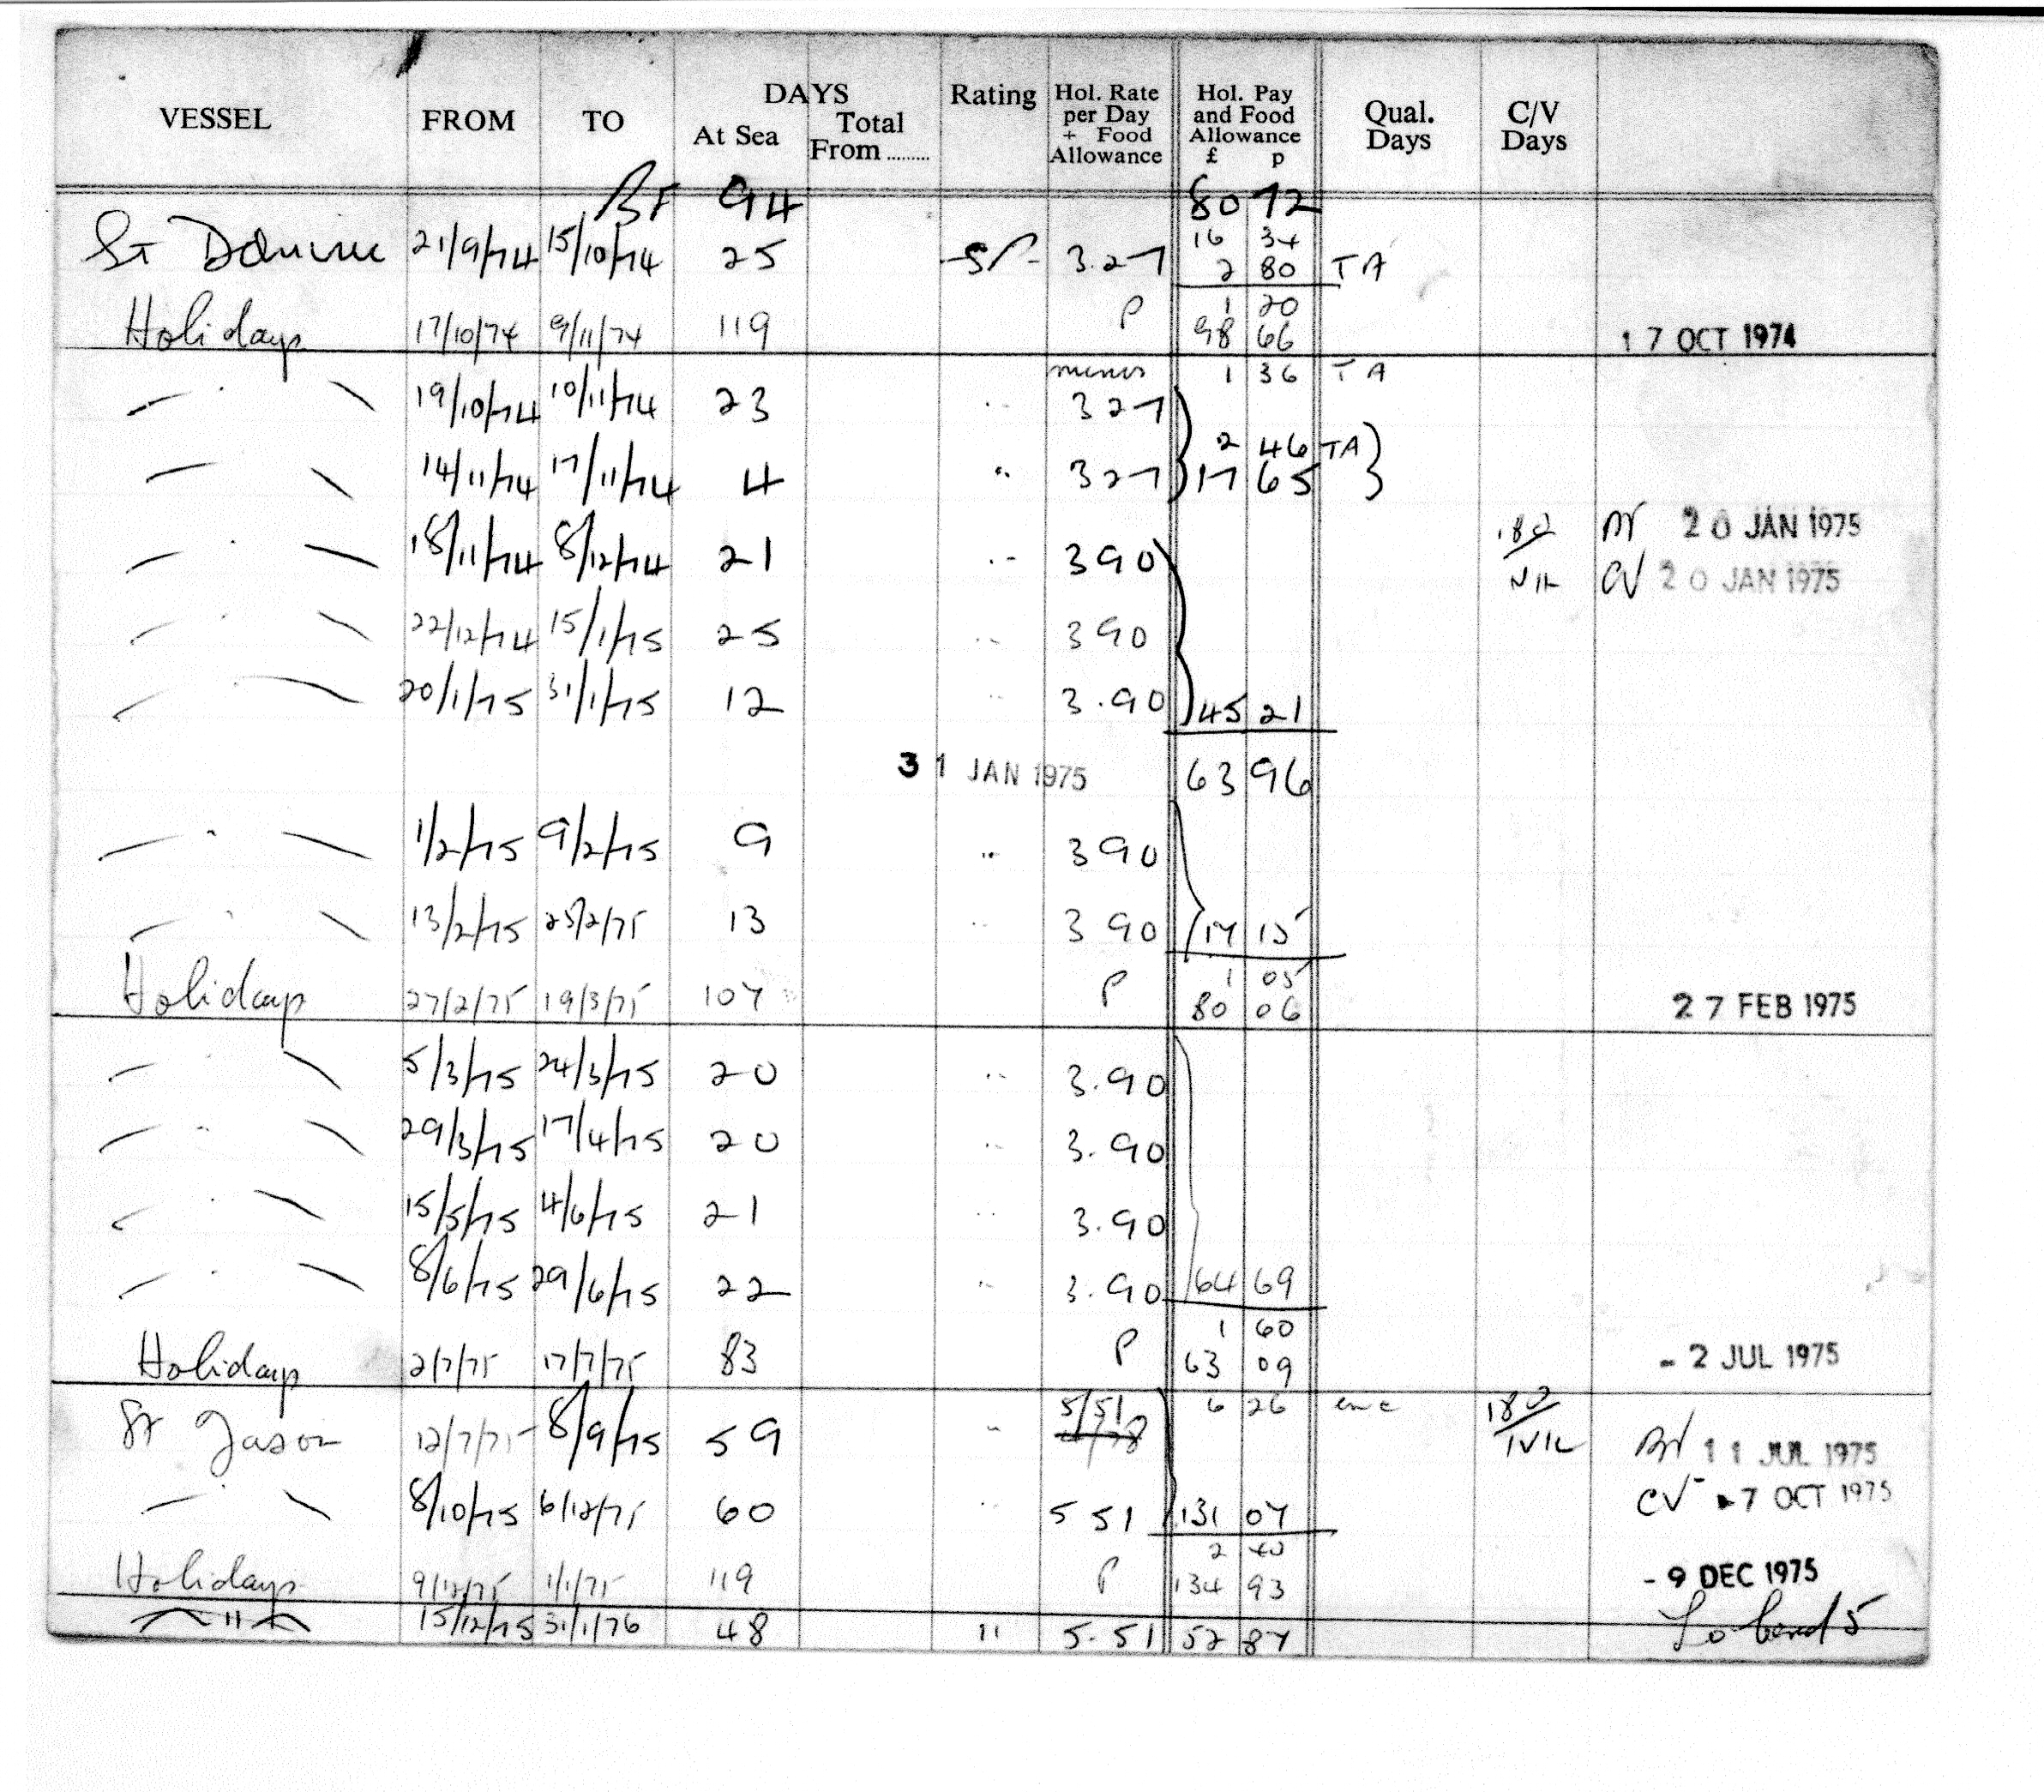 VESSEL FROM TO DAYS At Sea Total From ......... Rating Hol. Rate per Day + Food Allowance Hol. Pay and Food Allowance £ p Qual. Days C/V Days
BF 94 80 72
St Dominic 21/9/74 15/10/74 25 SP 3.27 16 34
2 80 TA
P 1 20
Holidays 17/10/74 9/11/74 119 98 66 17 OCT 1974
minus 1 36 TA
19/10/74 10/11/74 23 " 3 27
2 46 TA
14/11/74 17/11/74 4 " 3 27 17 65
18/11/74 8/12/74 21 " 3 90 182 20 JAN 1975
NIL CV 20 JAN 1975
22/12/74 15/1/75 25 " 3 90
20/1/75 31/1/75 12 " 3.90 45 21
31 JAN 1975 63 96
1/2/75 9/2/75 9 " 3 90
13/2/75 25/2/75 13 " 3 90 17 15
P 1 05
Holidays 27/2/75 19/3/75 107 80 06 27 FEB 1975
5/3/75 24/3/75 20 " 3.90
29/3/75 17/4/75 20 " 3.90
15/5/75 4/6/75 21 " 3.90
8/6/75 29/6/75 22 " 3.90 64 69
P 1 60
Holidays 2/7/75 17/7/75 83 63 09 - 2 JUL 1975
5/51 6 26 182
St Jason 12/7/75 8/9/75 59 " NIL 11 JUL 1975
8/10/75 6/12/75 60 " 5 51 131 07 CV - 7 OCT 1975
2 40
Holidays 9/12/75 1/1/75 119 P 134 93 - 9 DEC 1975
" 15/12/75 31/1/76 48 " 5.51 52 87